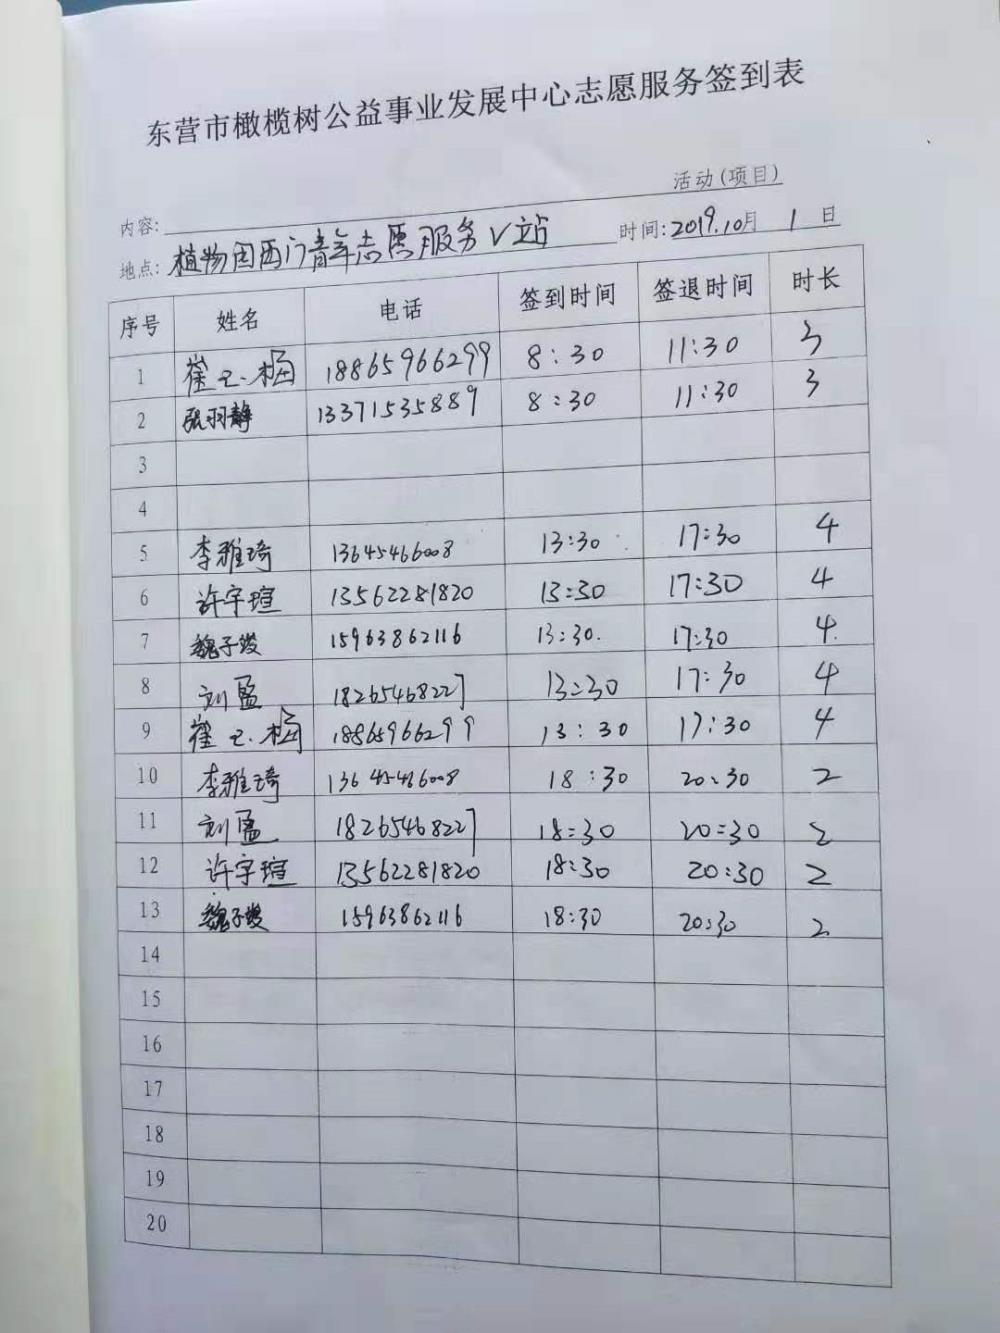 东营市橄榄树公益事业发展中心志愿服务签到表
内容: 活动(项目)
地点: 植物园西门青年志愿服务V站 时间: 2019.10月1日
序号 姓名 电话 签到时间 签退时间 时长
1 崔 18865966299 8:30 11:30 3
2 张羽静 13371535889 8:30 11:30 3
3
4
5 李雅琦 13645466008 13:30 17:30 4
6 许宇瑄 13562281820 13:30 17:30 4
7 魏子 15963862116 13:30. 17:30 4.
8 刘孟 18265468227 13:30 17:30 4
9 崔 18865966299 13:30 17:30 4
10 李雅琦 13645466008 18:30 20:30 2
11 刘孟 18265468227 18:30 20:30 2
12 许宇瑄 13562281820 18:30 20:30 2
13 魏子 15963862116 18:30 20:30 2
14
15
16
17
18
19
20